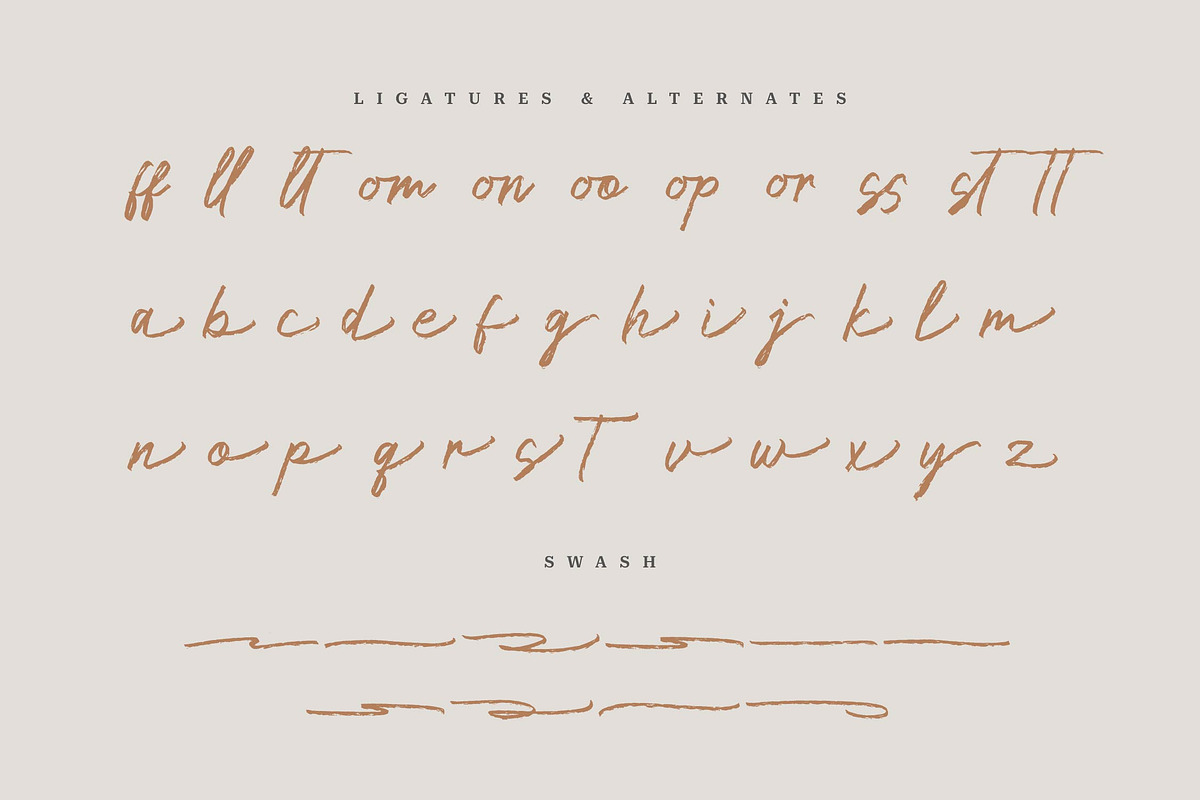 LIGATURES & ALTERNATES
ff ll lt om on oo op or ss st tt
a b c d e f g h i j k l m
n o p q r s t v w x y z
SWASH